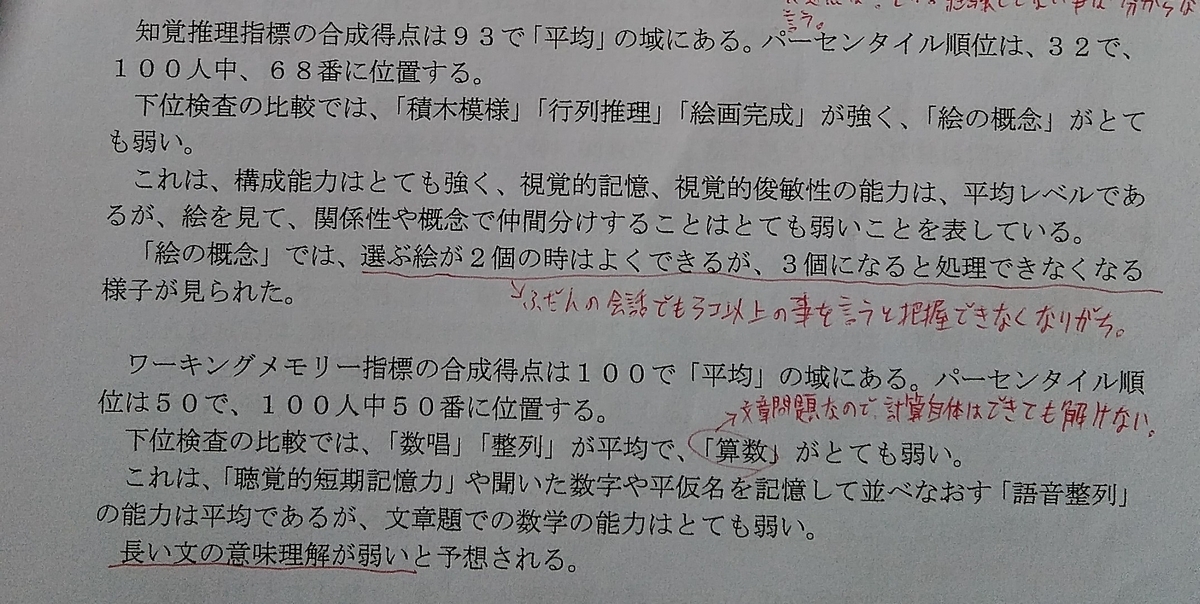 言う。
知覚推理指標の合成得点は９３で「平均」の域にある。パーセンタイル順位は、３２で、
１００人中、６８番に位置する。
下位検査の比較では、「積木模様」「行列推理」「絵画完成」が強く、「絵の概念」がとて
も弱い。
これは、構成能力はとても強く、視覚的記憶、視覚的俊敏性の能力は、平均レベルであ
るが、絵を見て、関係性や概念で仲間分けすることはとても弱いことを表している。
「絵の概念」では、選ぶ絵が２個の時はよくできるが、３個になると処理できなくなる
様子が見られた。
↘ふだんの会話でも3つ以上の事を言うと把握できなくなりがち。
ワーキングメモリー指標の合成得点は１００で「平均」の域にある。パーセンタイル順
位は５０で、１００人中５０番に位置する。
→文章問題なので、計算自体はできても解けない。
下位検査の比較では、「数唱」「整列」が平均で、「算数」がとても弱い。
これは、「聴覚的短期記憶力」や聞いた数字や平仮名を記憶して並べなおす「語音整列」
の能力は平均であるが、文章題での数学の能力はとても弱い。
長い文の意味理解が弱いと予想される。